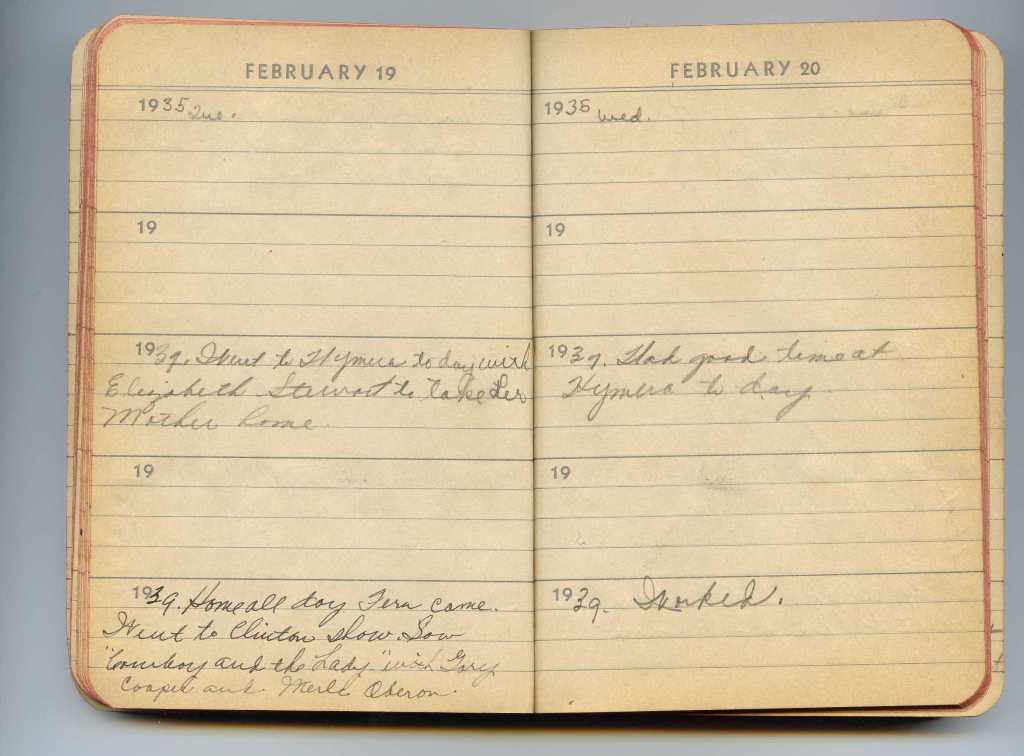 FEBRUARY 19
1935 Tue.
19
1937. Went to Hymera to day with
Elizabeth Stewart to take Her
Mother home.
19
1939. Home all day Fern came.
Went to Clinton show. Saw
"Cowboy and the Lady" with Gary
Cooper and Merle Oberon.
FEBRUARY 20
1935 Wed.
19
1937. Had good time at
Hymera to day.
19
1939. Worked.